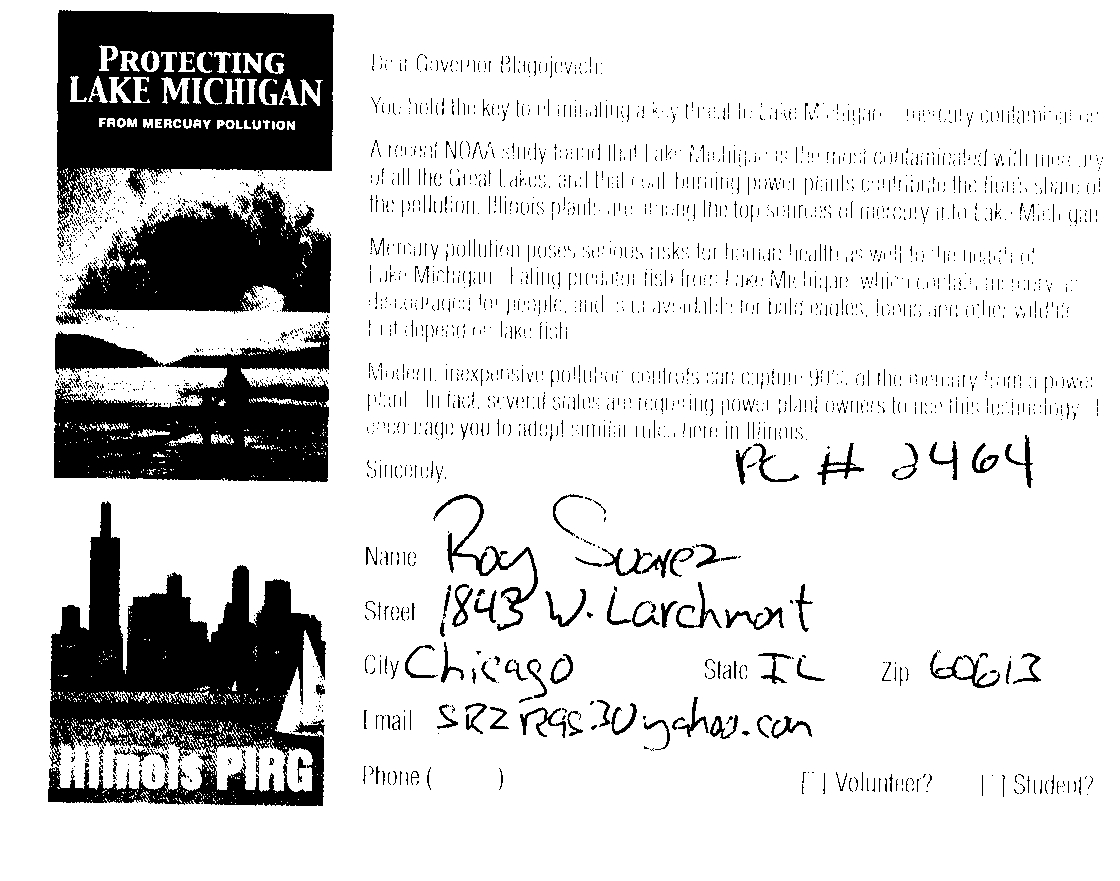 PROTECTING
LAKE MICHIGAN
FROM MERCURY POLLUTION
Illinois PIRG
Dear Governor Blagojevich:
You hold the key to eliminating a key threat to Lake Michigan – mercury contamination.
A recent NOAA study found that Lake Michigan is the most contaminated with mercury
of all the Great Lakes, and that coal-burning power plants contribute the lion's share of
the pollution. Illinois plants are among the top sources of mercury into Lake Michigan.
Mercury pollution poses serious risks for human health as well to the health of
Lake Michigan. Eating predator fish from Lake Michigan, which contain mercury, is
discouraged for people, and is unavoidable for bald eagles, loons and other wildlife
that depend on lake fish.
Modern, inexpensive pollution controls can capture 90% of the mercury from a power
plant. In fact, several states are requiring power plant owners to use this technology. I
encourage you to adopt similar rules here in Illinois.
Sincerely,
PC # 2464
Name Roy Suarez
Street 1843 W. Larchmont
City Chicago State IL Zip 60613
Email yahoo.com
Phone ( )
[ ] Volunteer? [ ] Student?